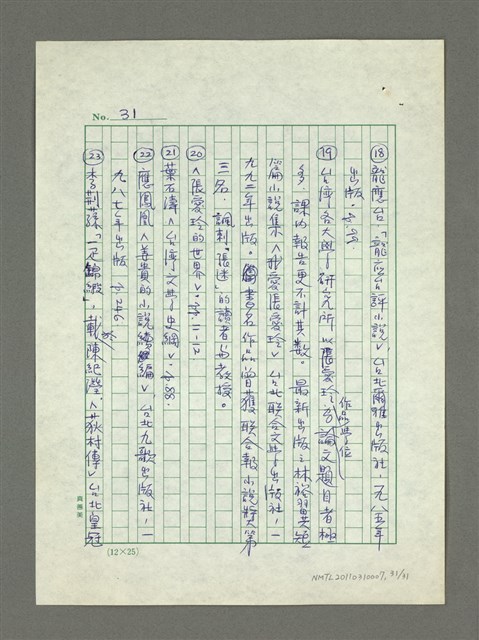 No. 31
⑱龍應台「龍應台評小說」台北爾雅出版社，一九八五年
出版。
⑲台灣各大學研究所以張愛玲為作品學位論文題目者極
多，課內報告更不計其數。最新出版之林裕翼短
篇小說集〈我愛張愛玲〉台北聯合文學出版社，一
九九二年出版。書名作品曾獲聯合報小說獎第
三名，諷刺「張迷」的讀者與教授。
⑳〈張愛玲的世界〉，
㉑葉石濤〈台灣文學史綱〉，
㉒應鳳凰〈姜貴的小說續編〉台北九歌出版社，一
九八七年出版
㉓李荊蓀「一疋錦緞」，載陳紀瀅，〈荻村傳〉台北皇冠
(12×25)
NMTL20110310007, 31/31